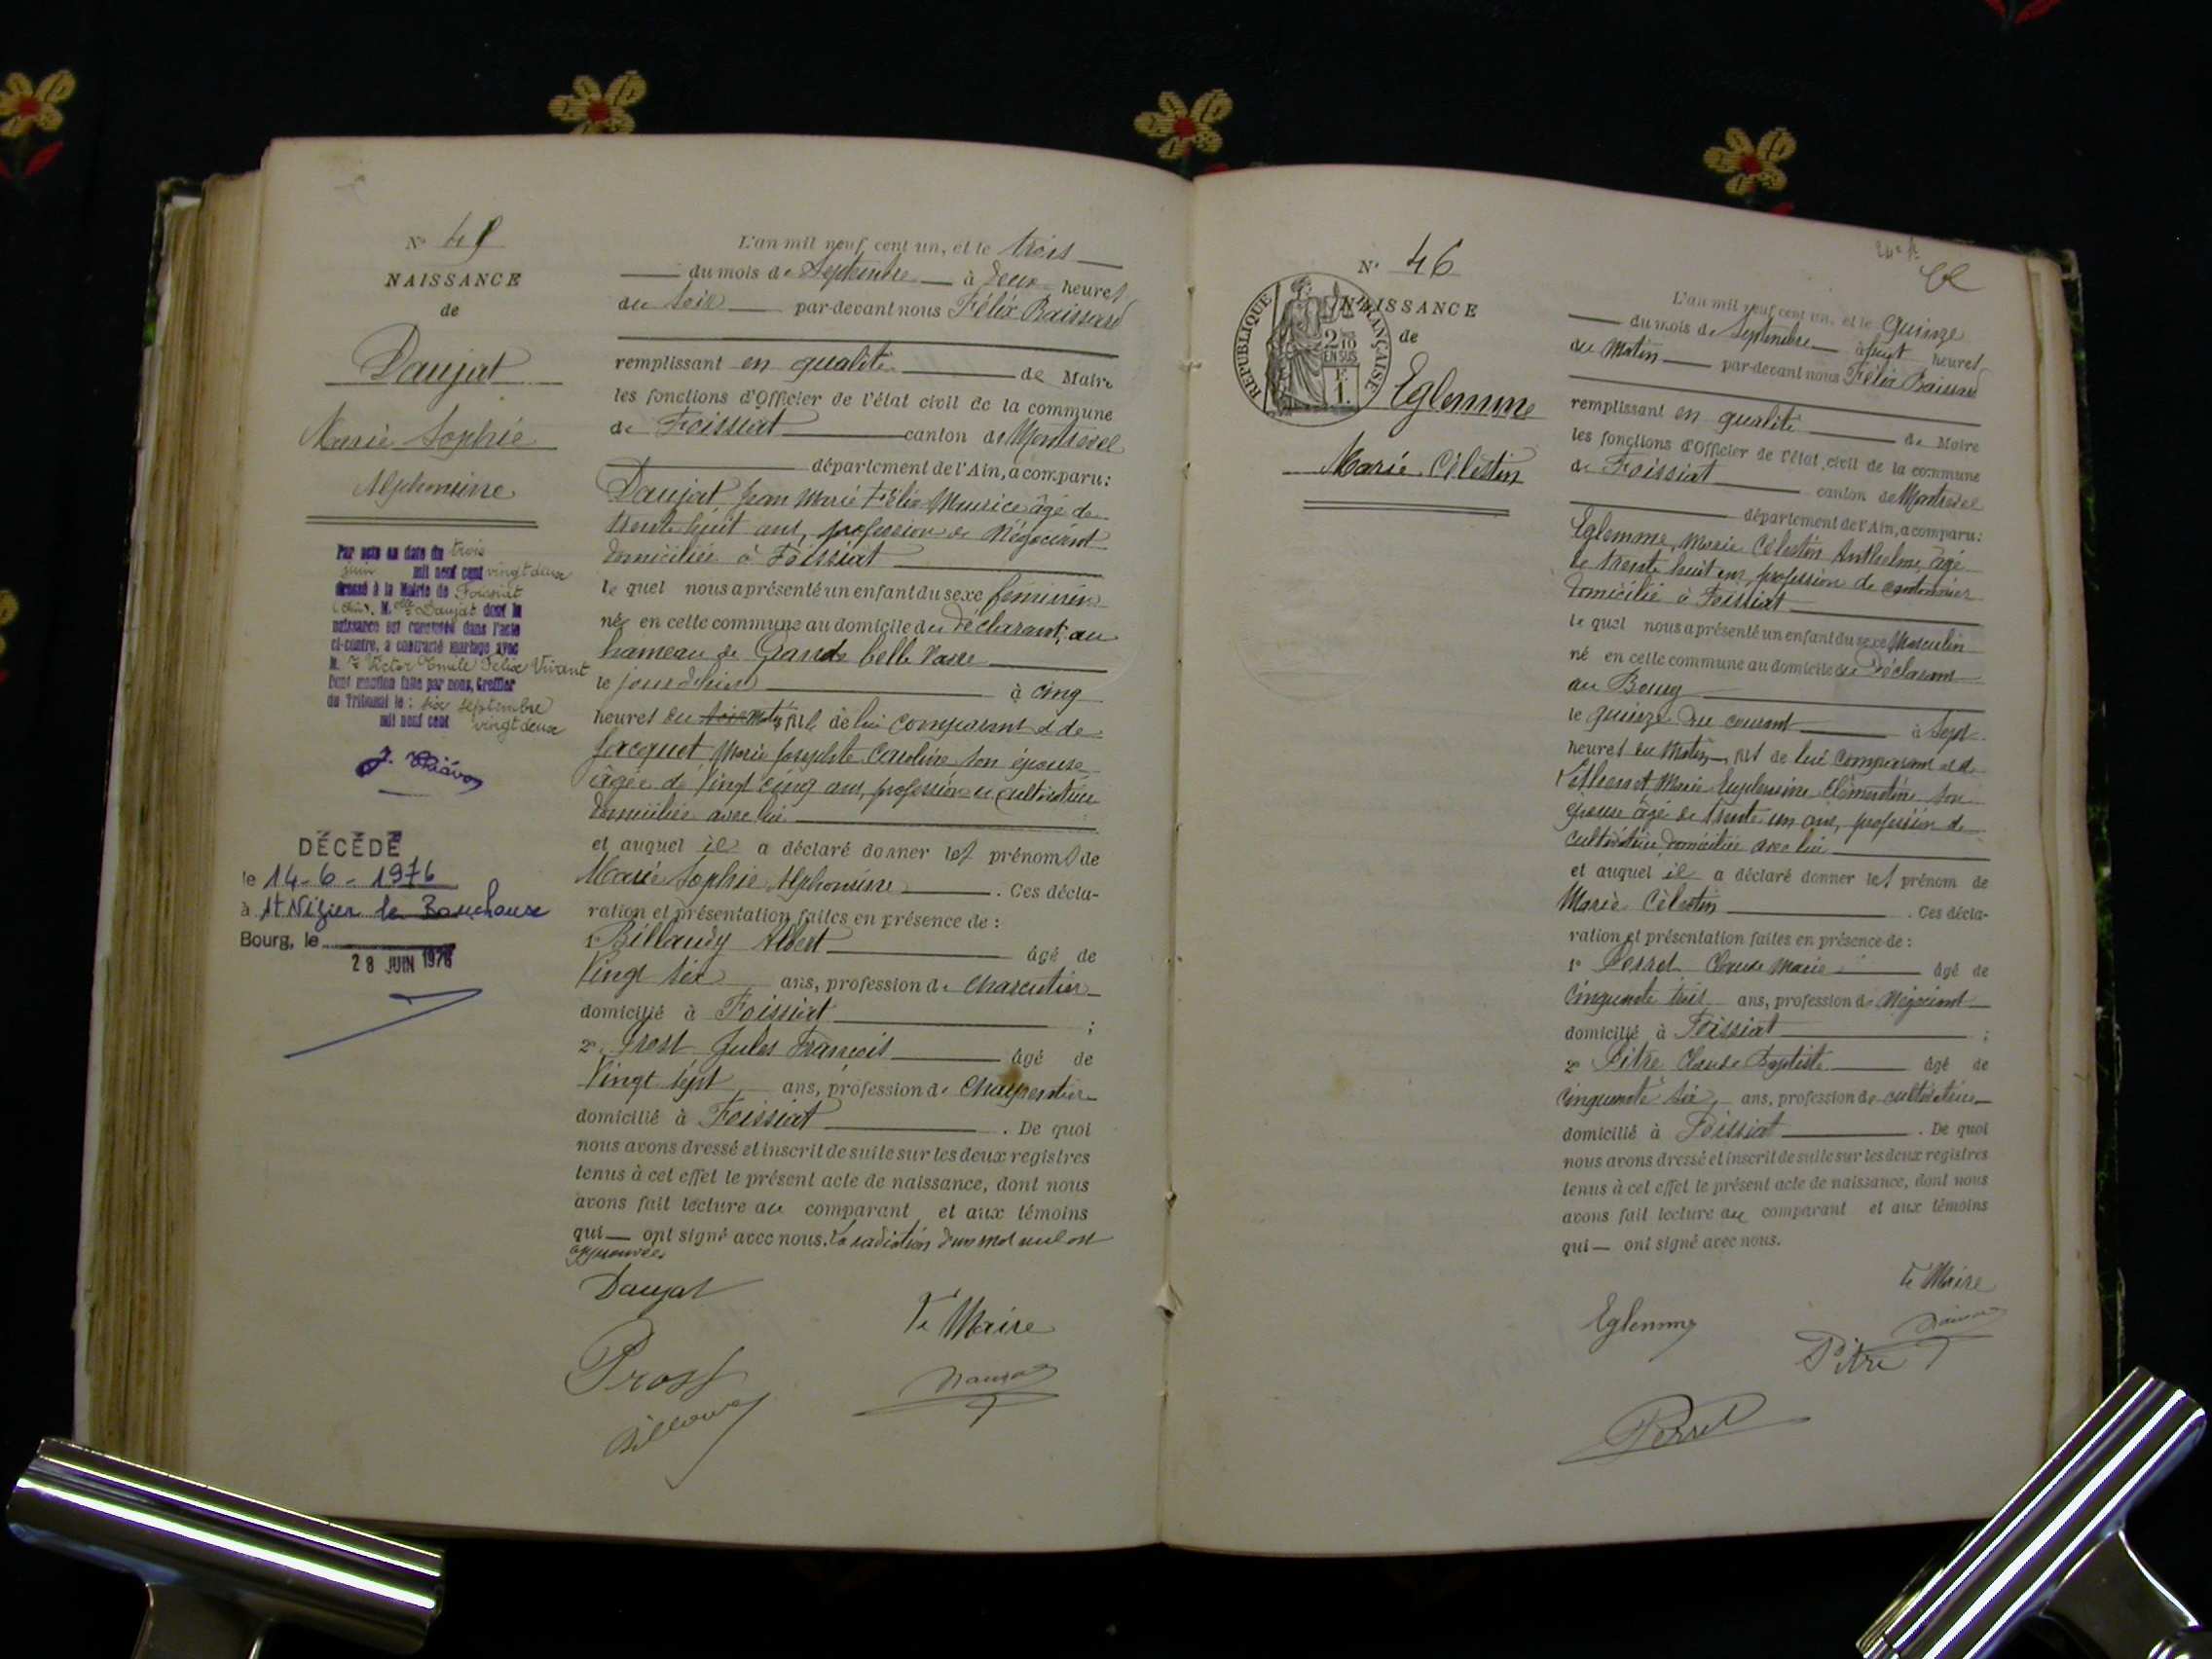 N° 45
NAISSANCE
de
Daujat
Marie Sophie
Alphonsine
Par acte en date du trois
juin mil neuf cent vingt deux
dressé à la Mairie de Foissiat
(Ain), M elle Daujat dont la
naissance est constatée dans l'acte
ci-contre, a contracté mariage avec
M. Victor Emile Félix Vivant
Dont mention faite par nous, Greffier
du Tribunal le : six septembre
mil neuf cent vingt deux
DÉCÉDÉ
le 14-6-1976
à St Nizier le Bouchoux
Bourg, le
28 JUIN 1976
L'an mil neuf cent un, et le trois
du mois de Septembre à deux heures
du soir par-devant nous Félix Baissard
remplissant en qualité de Maire
les fonctions d'Officier de l'état civil de la commune
de Foissiat canton de Montrevel
département de l'Ain, a comparu:
Daujat Jean Marie Félix Maurice âgé de
trente huit ans, profession de Négociant
domicilié à Foissiat
le quel nous a présenté un enfant du sexe féminin
née en cette commune au domicile du déclarant, au
hameau de Grande belle Vavre
le jourd'hui à cinq
heures du soir matin fille de lui comparant et de
Jacquet Marie Josephte Caroline son épouse
âgée de Vingt cinq ans, profession de cultivatrice
domiciliée avec lui
et auquel il a déclaré donner les prénoms de
Marie Sophie Alphonsine . Ces décla-
ration et présentation faites en présence de :
1° Billaudy Albert âgé de
Vingt six ans, profession de Charcutier
domicilié à Foissiat ;
2° Prost Jules François âgé de
Vingt sept ans, profession de Charpentier
domicilié à Foissiat . De quoi
nous avons dressé et inscrit de suite sur les deux registres
tenus à cet effet le présent acte de naissance, dont nous
avons fait lecture au comparant et aux témoins
qui ont signé avec nous. La radiation d'un mot nul est
approuvée
Daujat
Le Maire
Prost
Billaudy
N° 46
NAISSANCE
de
RÉPUBLIQUE FRANÇAISE
2/10
EN SUS
F.
1.
Eglemme
Marie Célestin
L'an mil neuf cent un, et le quinze
du mois de Septembre à huit heures
du matin par-devant nous Félix Baissard
remplissant en qualité de Maire
les fonctions d'Officier de l'état civil de la commune
de Foissiat canton de Montrevel
département de l'Ain, a comparu:
Eglemme, Marie Célestin Anthelme âgé
de trente huit ans, profession de cantonnier
domicilié à Foissiat
le quel nous a présenté un enfant du sexe Masculin
né en cette commune au domicile du Déclarant
au Bourg
le quinze du courant à Sept
heures du Matin, fils de lui comparant et de
Marie Euphrosine Clémentine son
épouse âgé de trente un ans, profession de
cultivatrice domiciliée avec lui
et auquel il a déclaré donner les prénom de
Marie Célestin . Ces décla-
ration et présentation faites en présence de :
1° Perret Claude Marie âgé de
Cinquante trois ans, profession de Négociant
domicilié à Foissiat ;
2° Pitre Claude Baptiste âgé de
Cinquante six ans, profession de cultivateur
domicilié à Foissiat . De quoi
nous avons dressé et inscrit de suite sur les deux registres
tenus à cet effet le présent acte de naissance, dont nous
avons fait lecture au comparant et aux témoins
qui ont signé avec nous.
Le Maire
Eglemme
Pitre
Perret